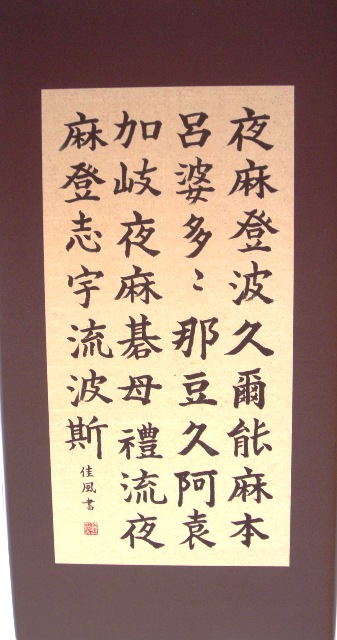 夜麻登波久爾能麻本
呂婆多〻那豆久阿袁
加岐夜麻碁母禮流夜
麻登志宇流波斯
佳風書